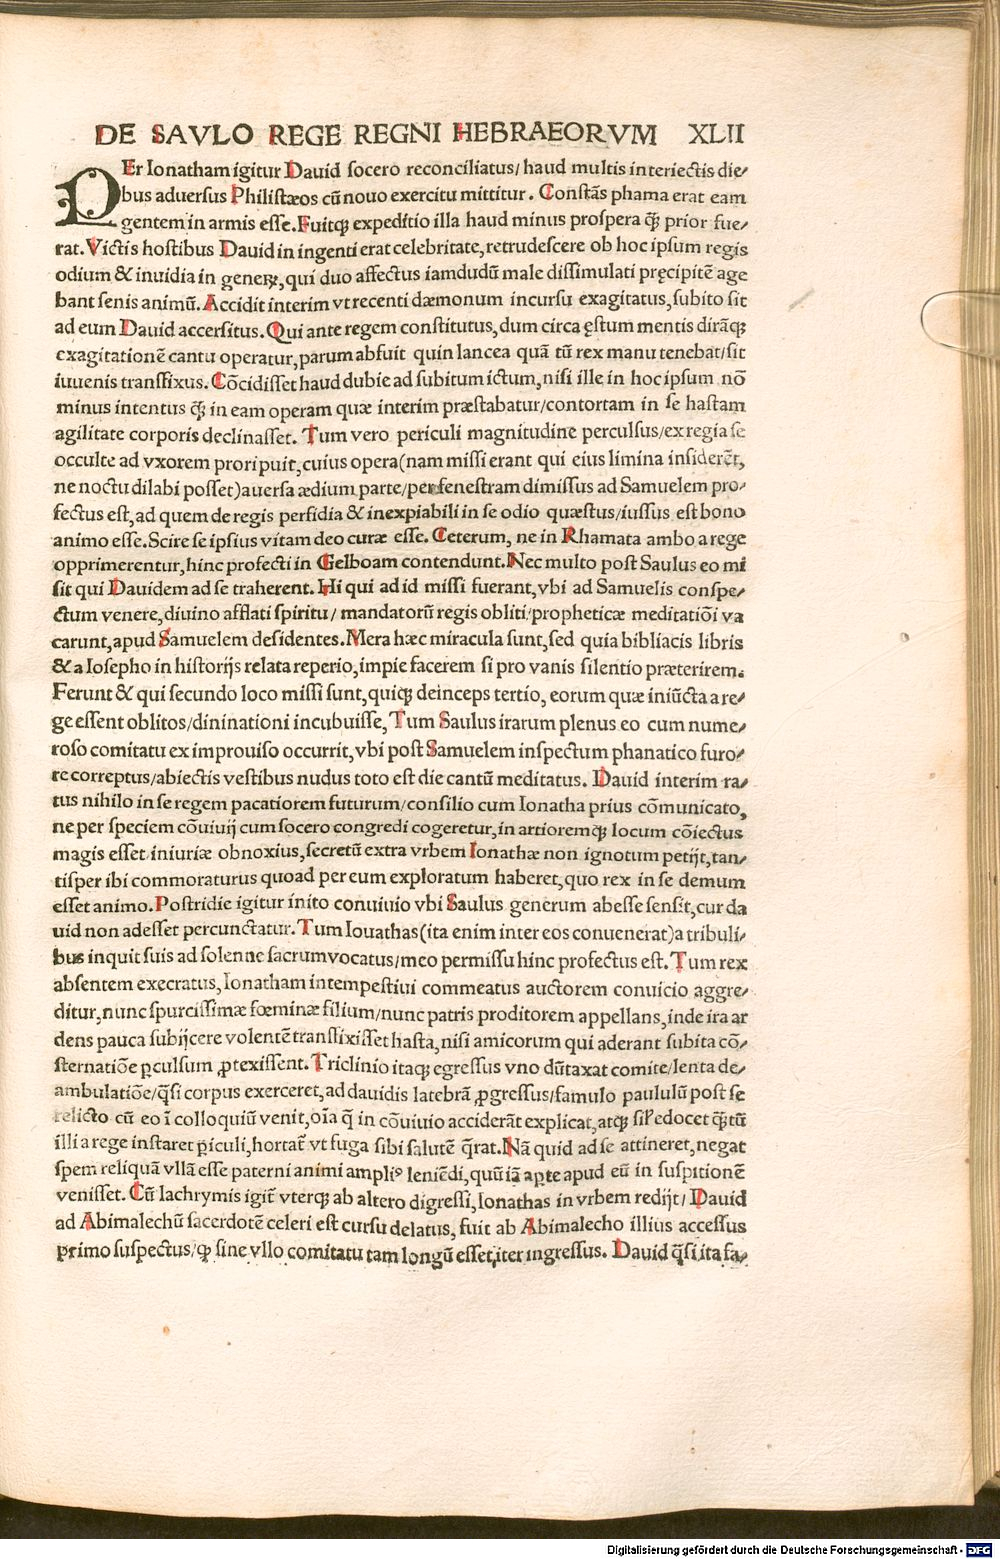 DE SAVLO REGE REGNI HEBRAEORVM XLII
PEr Ionatham igitur Dauid socero reconciliatus/ haud multis interiectis die/
bus aduersus Philistæos cū nouo exercitu mittitur. Constās phama erat eam
gentem in armis esse. Fuitqꝫ expeditio illa haud minus prospera qꝫ̄ prior fue/
rat. Victis hostibus Dauid in ingenti erat celebritate, retrudescere ob hoc ipsum regis
odium & inuidia in generꝝ, qui duo affectus iamdudū male dissimulati pręcipitē age
bant senis animū. Accidit interim vt recenti dæmonum incursu exagitatus, subito sit
ad eum Dauid accersitus. Qui ante regem constitutus, dum circa ęstum mentis dirāqꝫ
exagitationē cantu operatur, parum abfuit quin lancea quā tū rex manu tenebat/ sit
iuuenis transfixus. Cōcidisset haud dubie ad subitum ictum, nisi ille in hoc ipsum nō
minus intentus qꝫ̄ in eam operam quæ interim præstabatur/ contortam in se hastam
agilitate corporis declinasset. Tum vero periculi magnitudine perculsus/ ex regia se
occulte ad vxorem proripuit, cuius opera(nam missi erant qui eius limina insiderēt,
ne noctu dilabi posset)auersa ædium parte/ per fenestram dimissus ad Samuelem pro/
fectus est, ad quem de regis perfidia & inexpiabili in se odio quæstus/ iussus est bono
animo esse. Scire se ipsius vitam deo curæ esse. Ceterum, ne in Rhamata ambo a rege
opprimerentur, hinc profecti in Gelboam contendunt. Nec multo post Saulus eo mi
sit qui Dauidem ad se traherent. Hi qui ad id missi fuerant, vbi ad Samuelis conspe/
ctum venere, diuino afflati spiritu/ mandatorū regis obliti/ propheticæ meditatiōi va
carunt, apud Samuelem desidentes. Mera hæc miracula sunt, sed quia bibliacis libris
& a Iosepho in historijs relata reperio, impie facerem si pro vanis silentio præterirem.
Ferunt & qui secundo loco missi sunt, quiqꝫ deinceps tertio, eorum quæ iniūcta a re/
ge essent oblitos/ dininationi incubuisse, Tum Saulus irarum plenus eo cum nume/
roso comitatu ex improuiso occurrit, vbi post Samuelem inspectum phanatico furo/
re correptus/ abiectis vestibus nudus toto est die cantū meditatus. Dauid interim ra/
tus nihilo in se regem pacatiorem futurum/ consilio cum Ionatha prius cōmunicato,
ne per speciem cōuiuij cum socero congredi cogeretur, in artioremqꝫ locum cōiectus
magis esset iniuriæ obnoxius, secretū extra vrbem Ionathæ non ignotum petijt, tan/
tisper ibi commoraturus quoad per eum exploratum haberet, quo rex in se demum
esset animo. Postridie igitur inito conuiuio vbi Saulus generum abesse sensit, cur da
uid non adesset percunctatur. Tum Iouathas(ita enim inter eos conuenerat)a tribuli/
bus inquit suis ad solenne sacrum vocatus/ meo permissu hinc profectus est. Tum rex
absentem execratus, Ionatham intempestiui commeatus auctorem conuicio aggre/
ditur, nunc spurcissimæ fœminæ filium/ nunc patris proditorem appellans, inde ira ar
dens pauca subijcere volentē transfixisset hasta, nisi amicorum qui aderant subita cō/
sternatiōe ꝑculsum ꝓtexissent. Triclinio itaqꝫ egressus vno dūtaxat comite/ lenta de/
ambulatiōe/ q̄si corpus exerceret, ad dauidis latebrā ꝓgressus/ famulo paululū post se
relicto cū eo ī colloquiū venit, oīa q̄ in cōuiuio acciderāt explicat, atqꝫ sil̕ edocet qꝫ̄tū
illi a rege instaret ꝑiculi, hortat̄ vt fuga sibi salutē q̄rat. Nā quid ad se attineret, negat
spem reliquā vllā esse paterni animi ampliꝰ leniēdi, quū iā aꝑte apud eū in suspitionē
venisset. Cū lachrymis igit̄ vterqꝫ ab altero digressi, Ionathas in vrbem redijt/ Dauid
ad Abimalechū sacerdotē celeri est cursu delatus, fuit ab Abimalecho illius accessus
primo suspectus/ ꝙ sine vllo comitatu tam longū esset iter ingressus. Dauid q̄si ita fa/
Digitalisierung gefördert durch die Deutsche Forschungsgemeinschaft - DFG